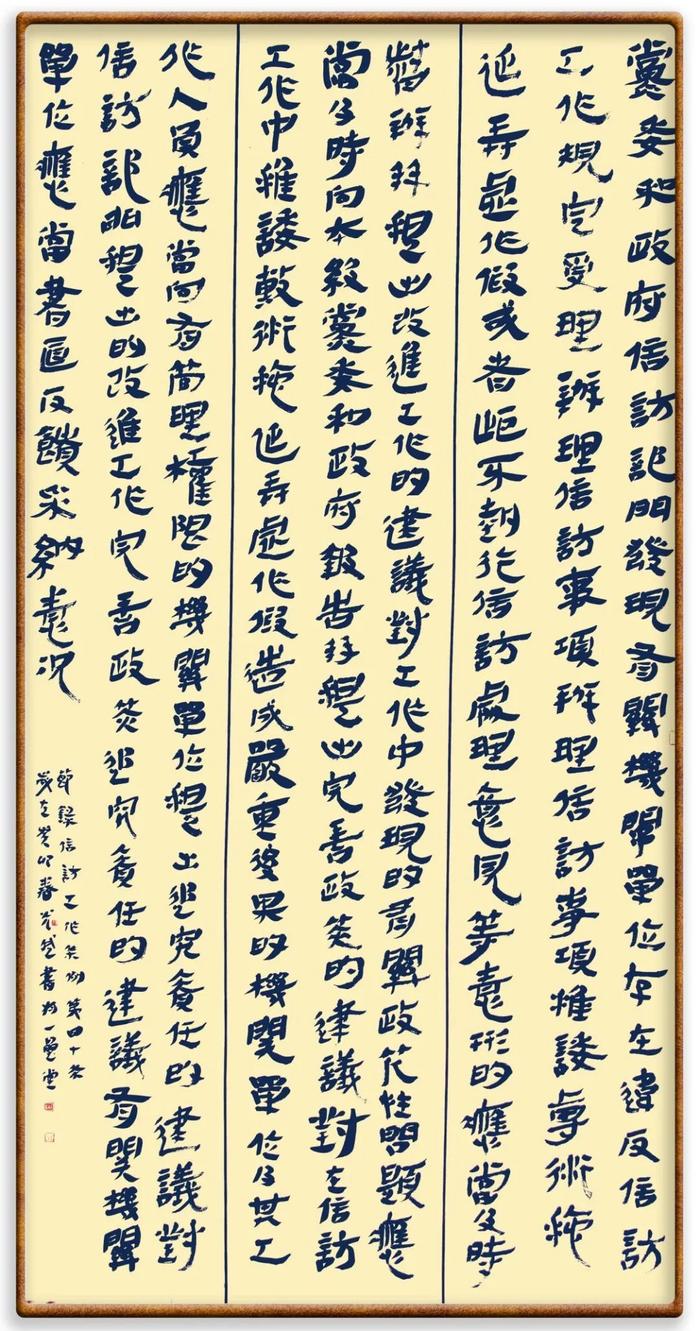 黨委和政府信訪部門發現有關機關單位存在違反信訪
工作規定受理辦理信訪事項辦理信訪事項推諉敷衍拖
延弄虛作假或者拒不執行信訪處理意見等情形的應當及時
督辦并提出改進工作的建議對工作中發現的有關政策性問題應
當及時向本級黨委和政府報告并提出完善政策的建議對在信訪
工作中推諉敷衍拖延弄虛作假造成嚴重後果的機關單位及其工
作人員應當向有管理權限的機關單位提出追究責任的建議對
信訪部門提出的改進工作完善政策追究責任的建議有關機關
單位應當書面反饋采納情況
節錄信訪工作条例第四十条
歲在癸卯春書於一堂